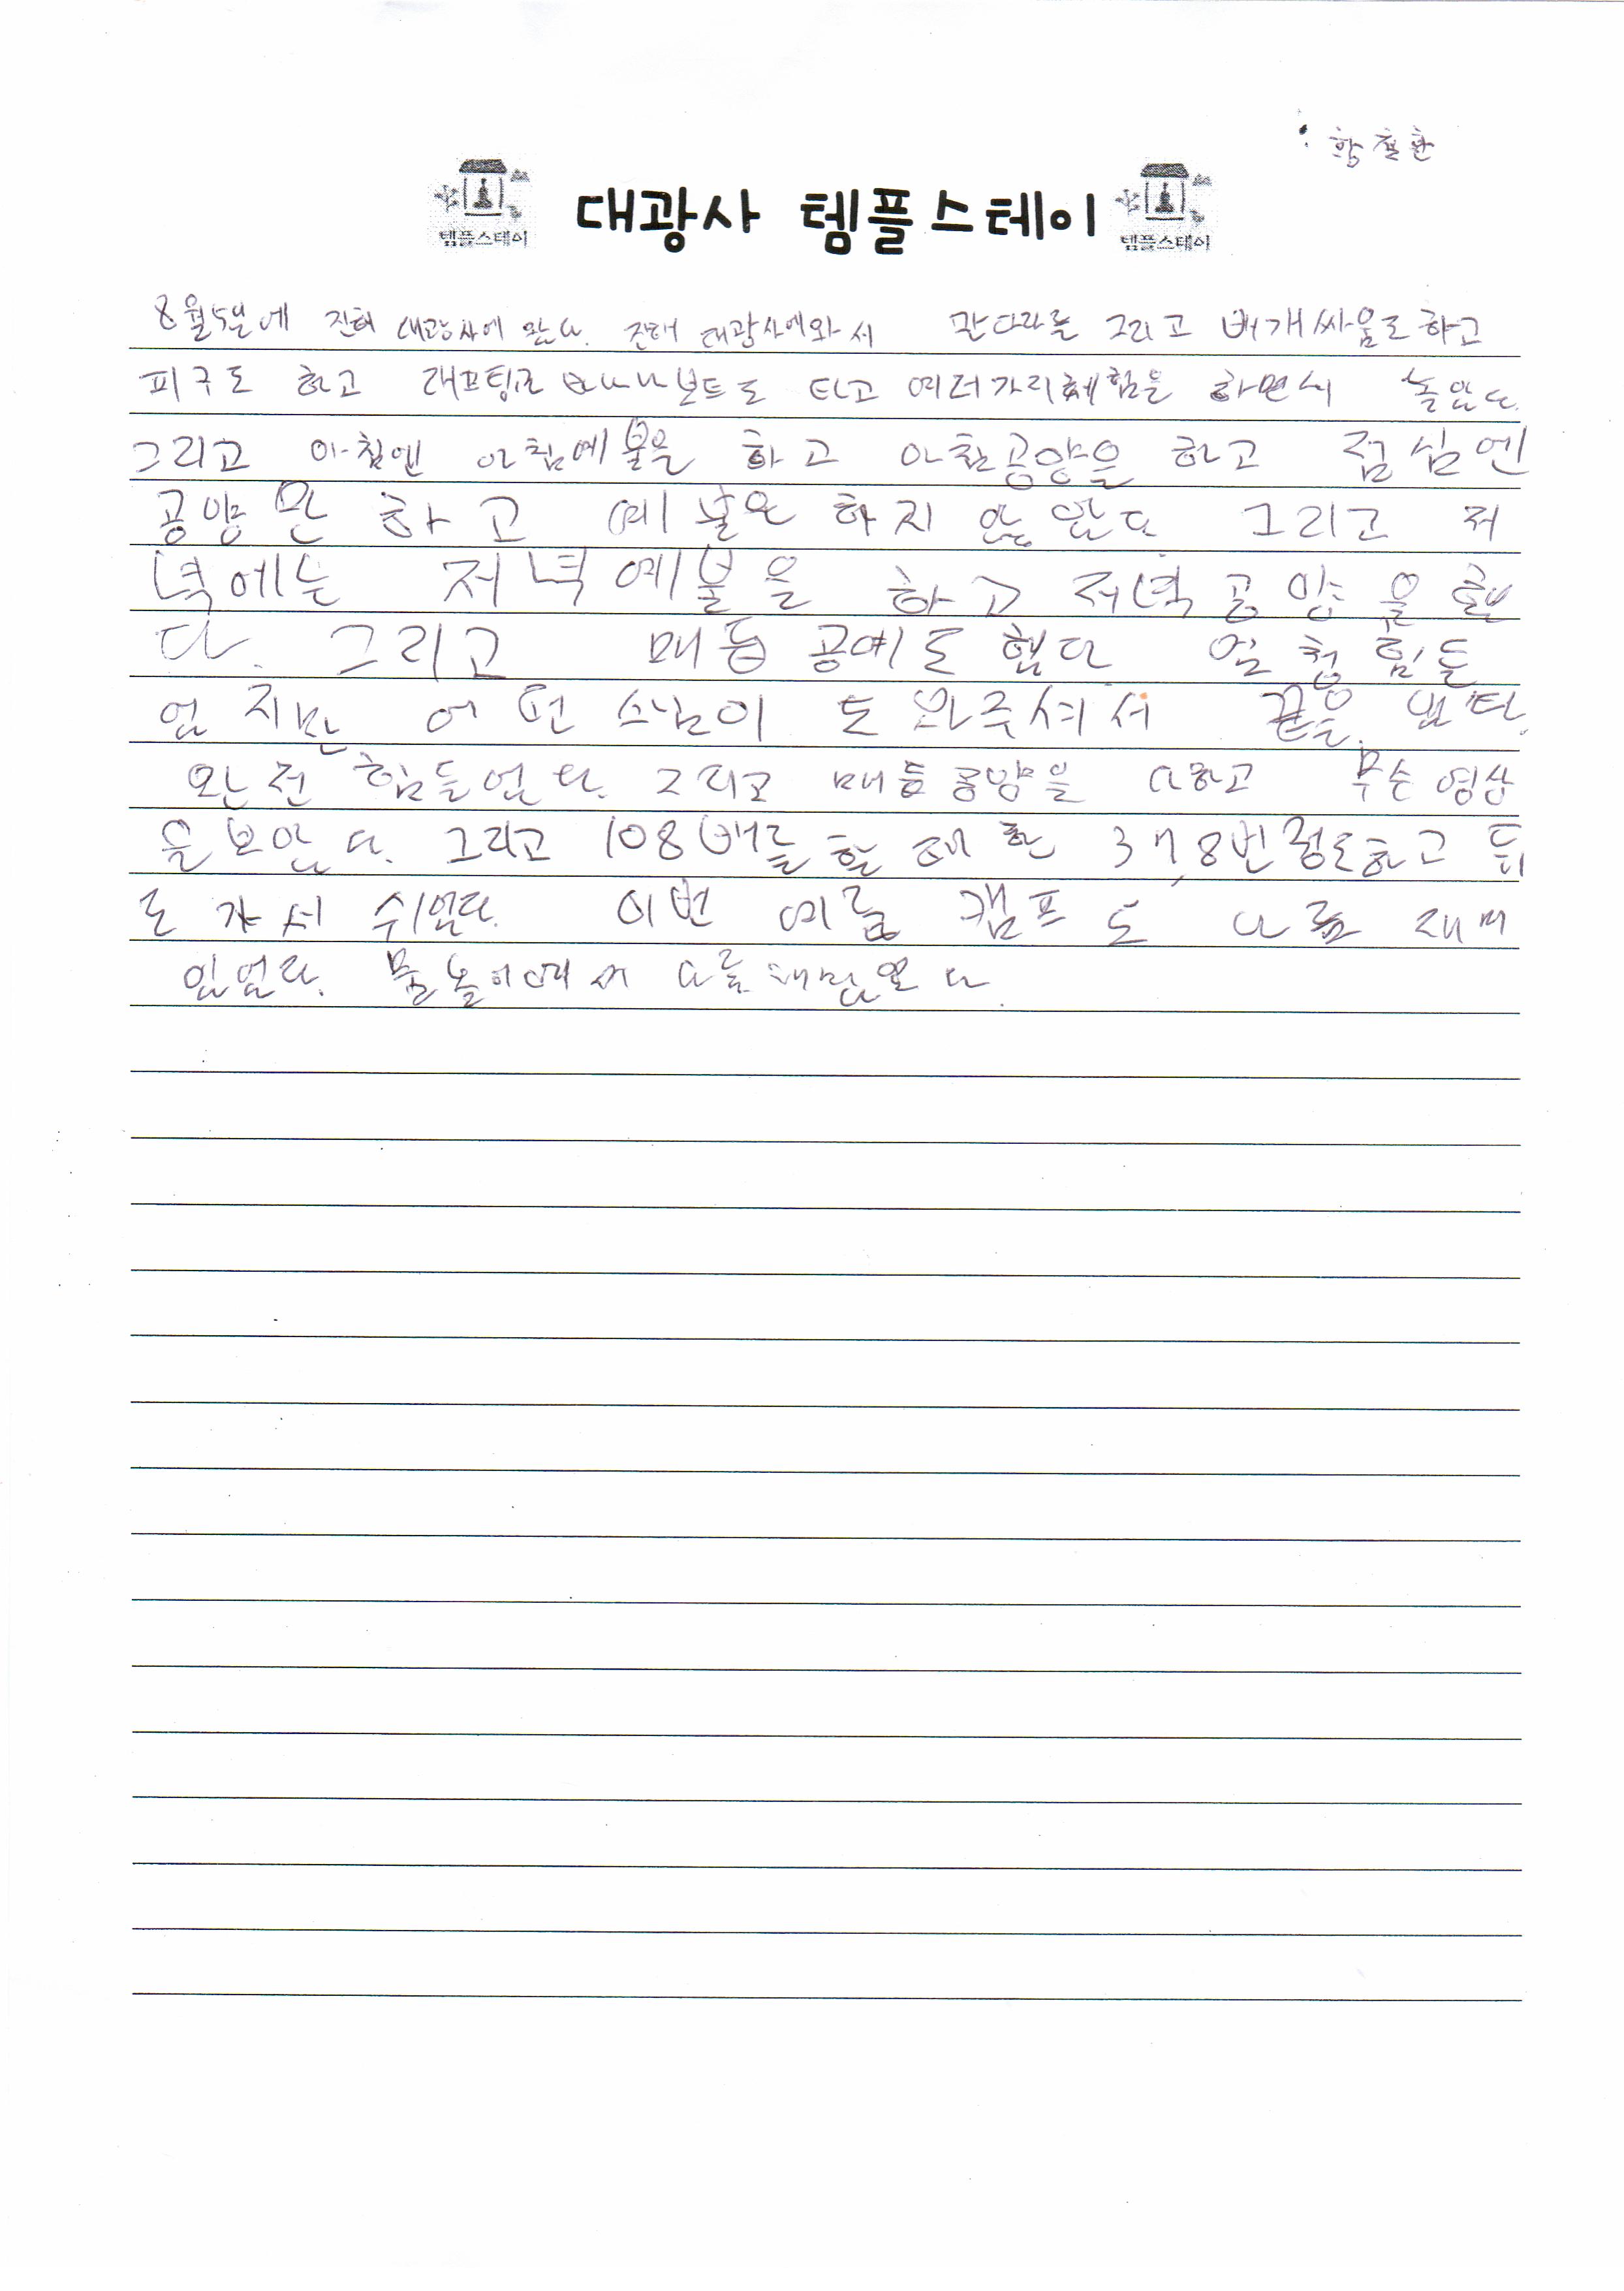 황철환
템플스테이 대광사 템플스테이 템플스테이
8월5일에 진해 대광사에 왔다. 진해 대광사에와서 만다라를 그리고 버개싸움도하고
피구도 하고 래프팅고 바나나보트도 타고 여러가리체험을 하면서 놀았다.
그리고 아침엔 아침예불을 하고 아침공양을 하고 점심엔
공양만 하고 예불은 하지 않았다 그리고 저
녁에는 저녁예불을 하고 저녁공양을 했
다. 그리고 매듭공예도 했다 엄청힘들
었지만 어떤 스님이 도와주셔서 끝을 냈다.
완전 힘들었다. 그리고 매듭공양을 다하고 무슨 영상
을 보았다. 그리고 108배를 할때 한 37,8번정도하고 뒤
로 가서 쉬었다. 이번 여름 캠프도 나름 재미
있었다. 물놀이에서 나름